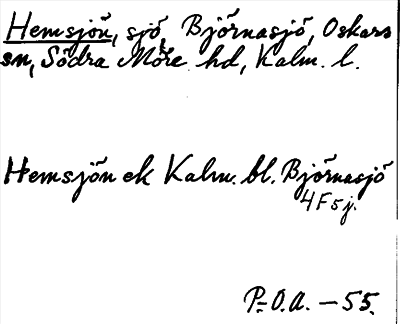 Hemsjön, sjö, Björnasjö, Oskars
sn, Södra Möre hd, Kalm. l.
Hemsjön ek Kalm. bl. Björnasjö
4F5j.
P.O.A. – 55.